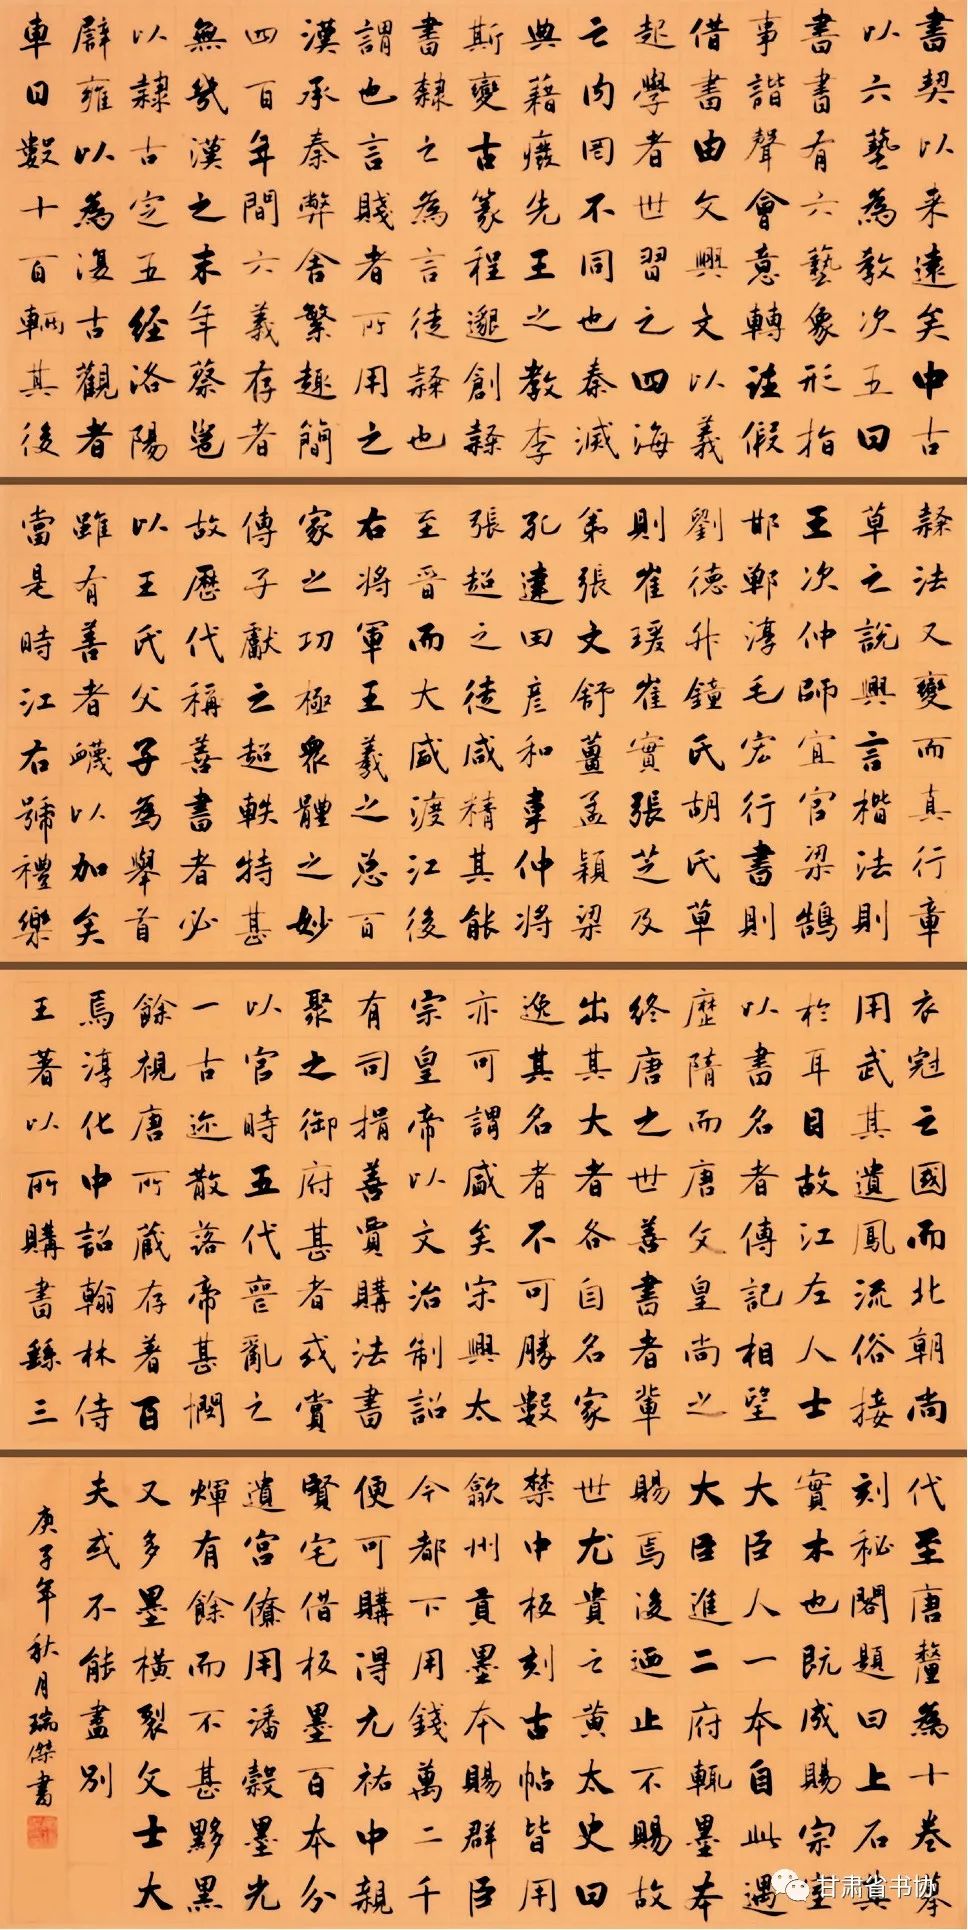 書契以来遠矣中古
以六藝為教次五曰
書書有六藝象形指
事諧聲會意轉注假
借書由文興文以義
起學者世習之四海
之内罔不同也秦滅
典籍癈先王之教李
斯變古篆程邈創隸
書隸之為言徒隸也
謂也言賤者所用之
漢承秦弊舍繁趣簡
四百年間六義存者
無幾漢之末年蔡邕
以隸古定五經洛陽
辟雍以為復古觀者
車日數十百輛其後
隸法又變而真行章
草之說興言楷法則
王次仲師宜官梁鵠
邯鄲淳毛宏行書則
劉德升鐘氏胡氏草
則崔瑗崔實張芝及
弟張文舒薑孟穎梁
孔達田彦和韋仲将
張超之徒咸精其能
至晉而大盛渡江後
右將軍王羲之总百
家之功極眾體之妙
傳子獻之超軼特甚
故歷代稱善書者必
以王氏父子為舉首
雖有善者蠛以加矣
當是時江右號禮樂
衣冠之國而北朝尚
用武其遺風流俗接
於耳目故江左人士
以書名者傳記相望
歷隋而唐文皇尚之
終唐之世善書者輩
出其大者各自名家
逸其名者不可勝數
亦可謂盛矣宋興太
宗皇帝以文治制詔
有司捐善賈購法書
聚之御府甚者或賞
以官時五代喪亂之
一古迹散落帝甚憫
餘視唐所蔵存著百
焉淳化中詔翰林侍
王著以所購書繇三
代至唐釐為十卷摹
刻秘閣題曰上石其
實木也既成賜宗室
大臣人一本自此遇
大臣進二府輒墨本
賜焉後迺止不賜故
世尤貴之黄太史曰
禁中板刻古帖皆用
歙州貢墨本賜群臣
今都下用錢萬二千
便可購得元祐中親
賢宅借板墨百本分
遺宮僚用潘穀墨光
輝有餘而不甚黟黑
又多墨横裂文士大
夫或不能盡別
庚子年秋月瑞傑書
甘肃省书协